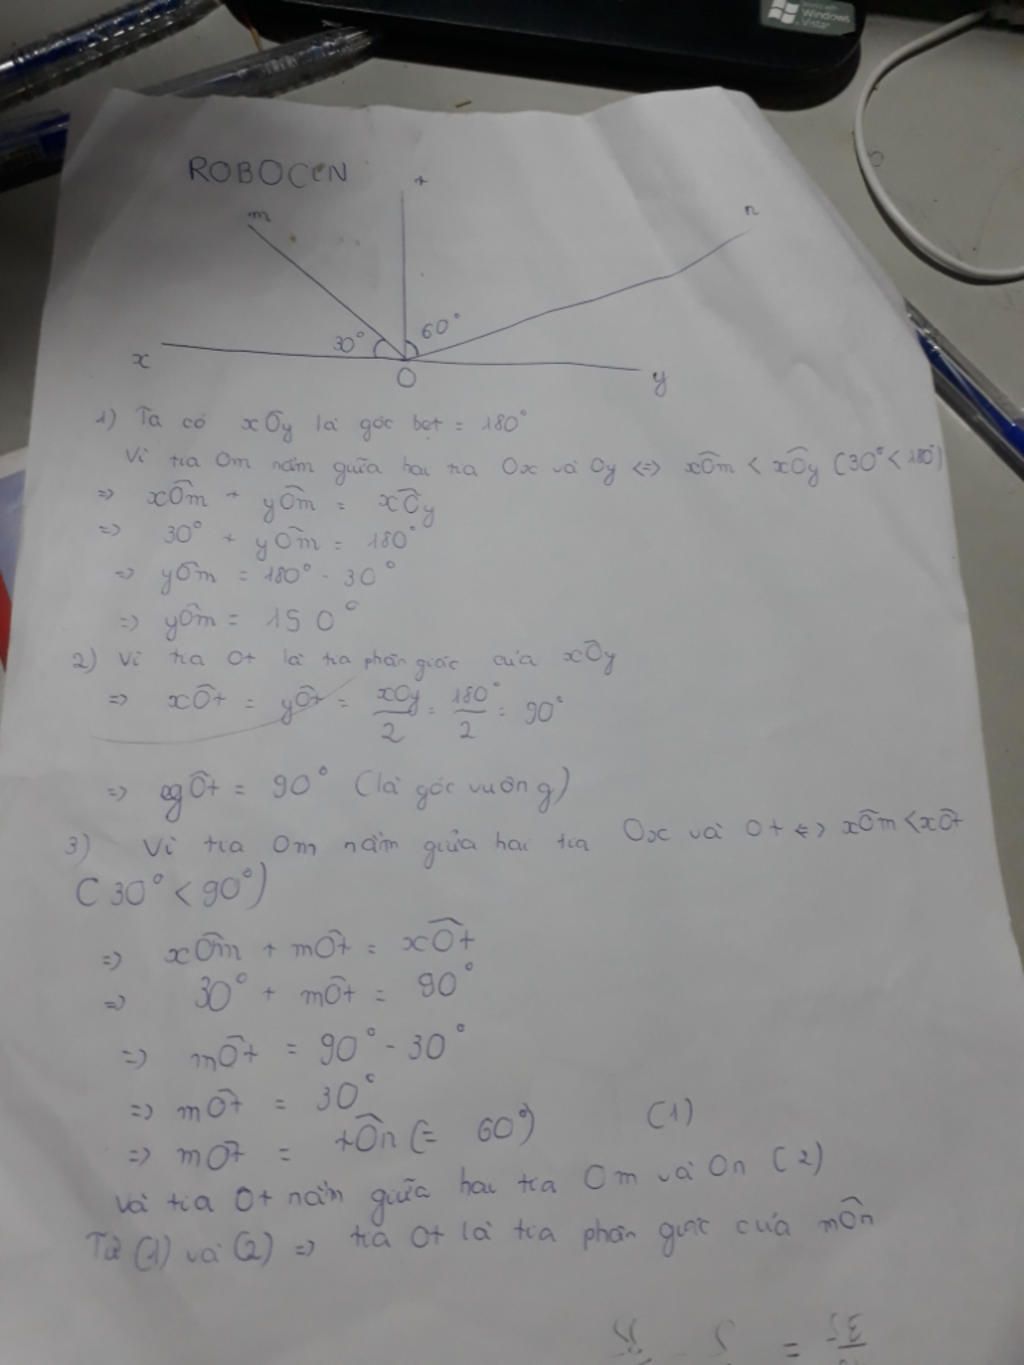 Windows Vista
ROBOCON
m
t
n
30°
60°
x
O
y
1) Ta có xÔy là góc bẹt = 180°
Vì tia Om nằm giữa hai tia Ox và Oy <=> xÔm < xÔy (30° < 180°)
=> xÔm + yÔm = xÔy
=> 30° + yÔm = 180°
=> yÔm = 180° - 30°
=> yÔm = 150°
2) Vì tia Ot là tia phân giác của xÔy
=> xÔt = yÔt = xOy/2 = 180°/2 = 90°
=> yÔt = 90° (là góc vuông)
3) Vì tia Om nằm giữa hai tia Ox và Ot <=> xÔm < xÔt
(30° < 90°)
=> xÔm + mÔt = xÔt
=> 30° + mÔt = 90°
=> mÔt = 90° - 30°
=> mÔt = 30°
=> mÔt = tÔn (= 60°) (1)
Và tia Ot nằm giữa hai tia Om và On (2)
Từ (1) và (2) => tia Ot là tia phân giác của mÔn